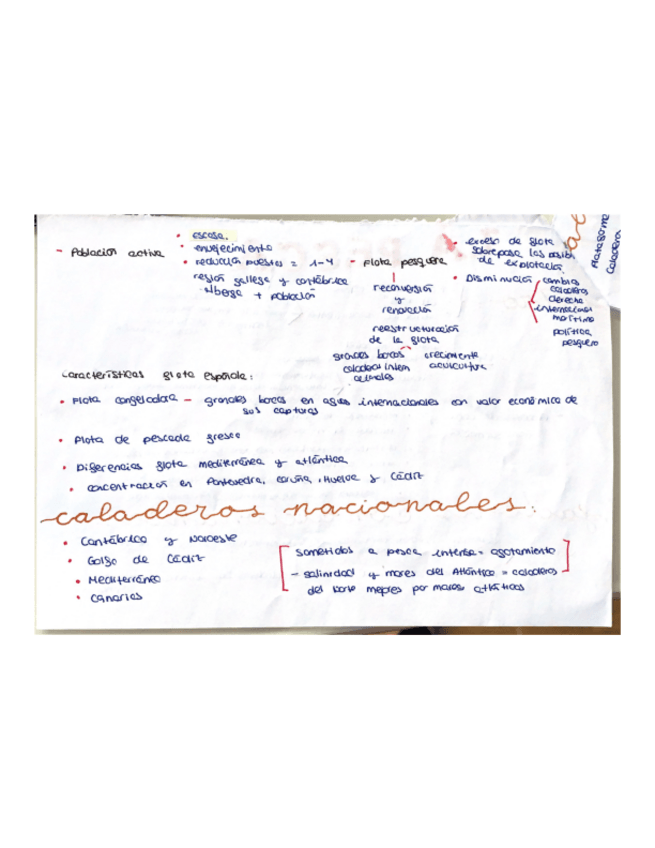 - Población activa
• escasa.
• envejecimiento
• reducción puestos = 1-4
región gallega y cantábrica
alberga + población
- Flota pesquera
reconversión
y
renovación
reestructuración
de la flota
grandes barcos
caladeros intern
crecimiento
acuicultura
• exceso de flota
sobrepasa las
de explotación.
• Disminución
cambios
caladeros
derecho
internacional
marítimo
política
pesquero
Caladeros
Características flota española:
• Flota congeladora - grandes barcos en aguas internacionales con valor económico de
sus capturas
• Flota de pescado fresco
• Diferencias flota mediterránea y atlántica
• concentración en Pontevedra, coruña, Huelva y Cádiz
caladeros nacionales:
• Cantábrico y Noroeste
• Golfo de Cádiz
• Mediterráneo
• Canarias
sometidos a pesca intensa = agotamiento
- salinidad y mares del Atlántico = caladeros
del norte mejores por mareas atlánticas